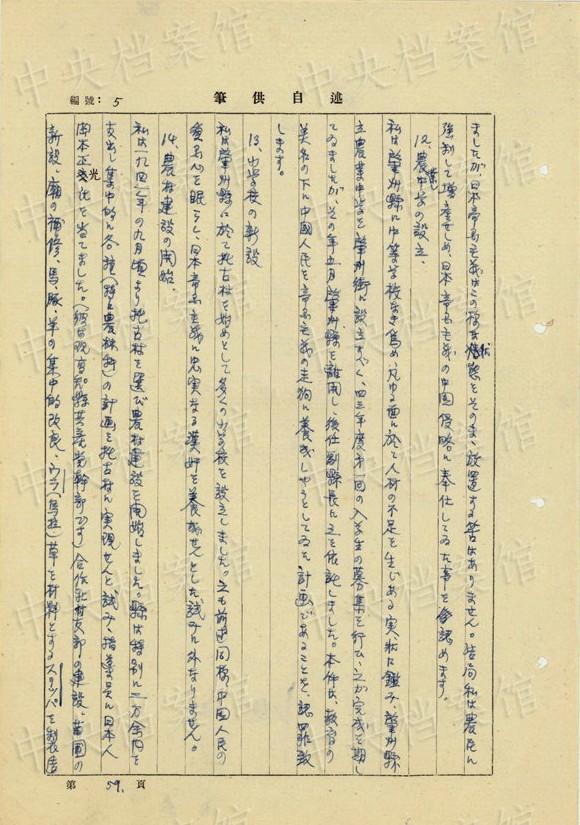 中央档案馆
筆供自述
編號：5
ましたが、日本帝国主義はこの様な状態をそのまゝ放置する筈はありません。結局私は農民を
強制して増産せしめ、日本帝国主義の中国侵略に奉仕してゐた事を認めます。
12、農業中学の設立、
私は肇州縣に中等学校なき為め、凡ゆる面に於て人材の不足を生じある実状に鑑み、肇州縣
立農業中学を肇州街に設立すべく、四三年度第一回の入学生の募集を行ひ、之が完成を期し
てゐましたが、その年五月肇州縣を離任し、後任副縣長に之を依託しました。本件は、教育の
美名の下に中国人民を帝国主義の走狗に養成しやうとしてゐた計画であることを、認罪致
します。
13、小学校の新設
私は肇州縣に於て托古村を始めとして多くの小学校を設立しました。之も前述同様、中国人民の
愛国心を眠らし、日本帝国主義に忠実なる漢奸を養成せんとした試みに外なりません。
14、農村建設の開始、
私は一九四二年の九月頃より托古村を選び農村建設を開始しました。縣は特別に一万余円を
支出し集中的に各種（特に農林科）の計画を托古村に実現せんと試み、指導員に日本人
岡本正光氏を当てました。（彼は現高知縣共産党幹部です）合作社村支部の建設、苗圃の
新設、廟の補修、馬、豚、羊の集中的改良、ウラ（烏拉）草を材料とするスリッパを製造
第 59. 頁